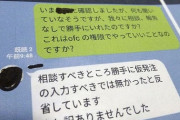 いま 確認しましたが、何も聞い
ていなさそうですが、我々に相談、報告
なしで勝手に間引いたのですか？
これはofcの権限でやっていいことな
のですか？
既読 3
午前9:48
相談すべきところ勝手に仮発注
の入力すべきでは無かったと反
省しています
し訳ありませんでした